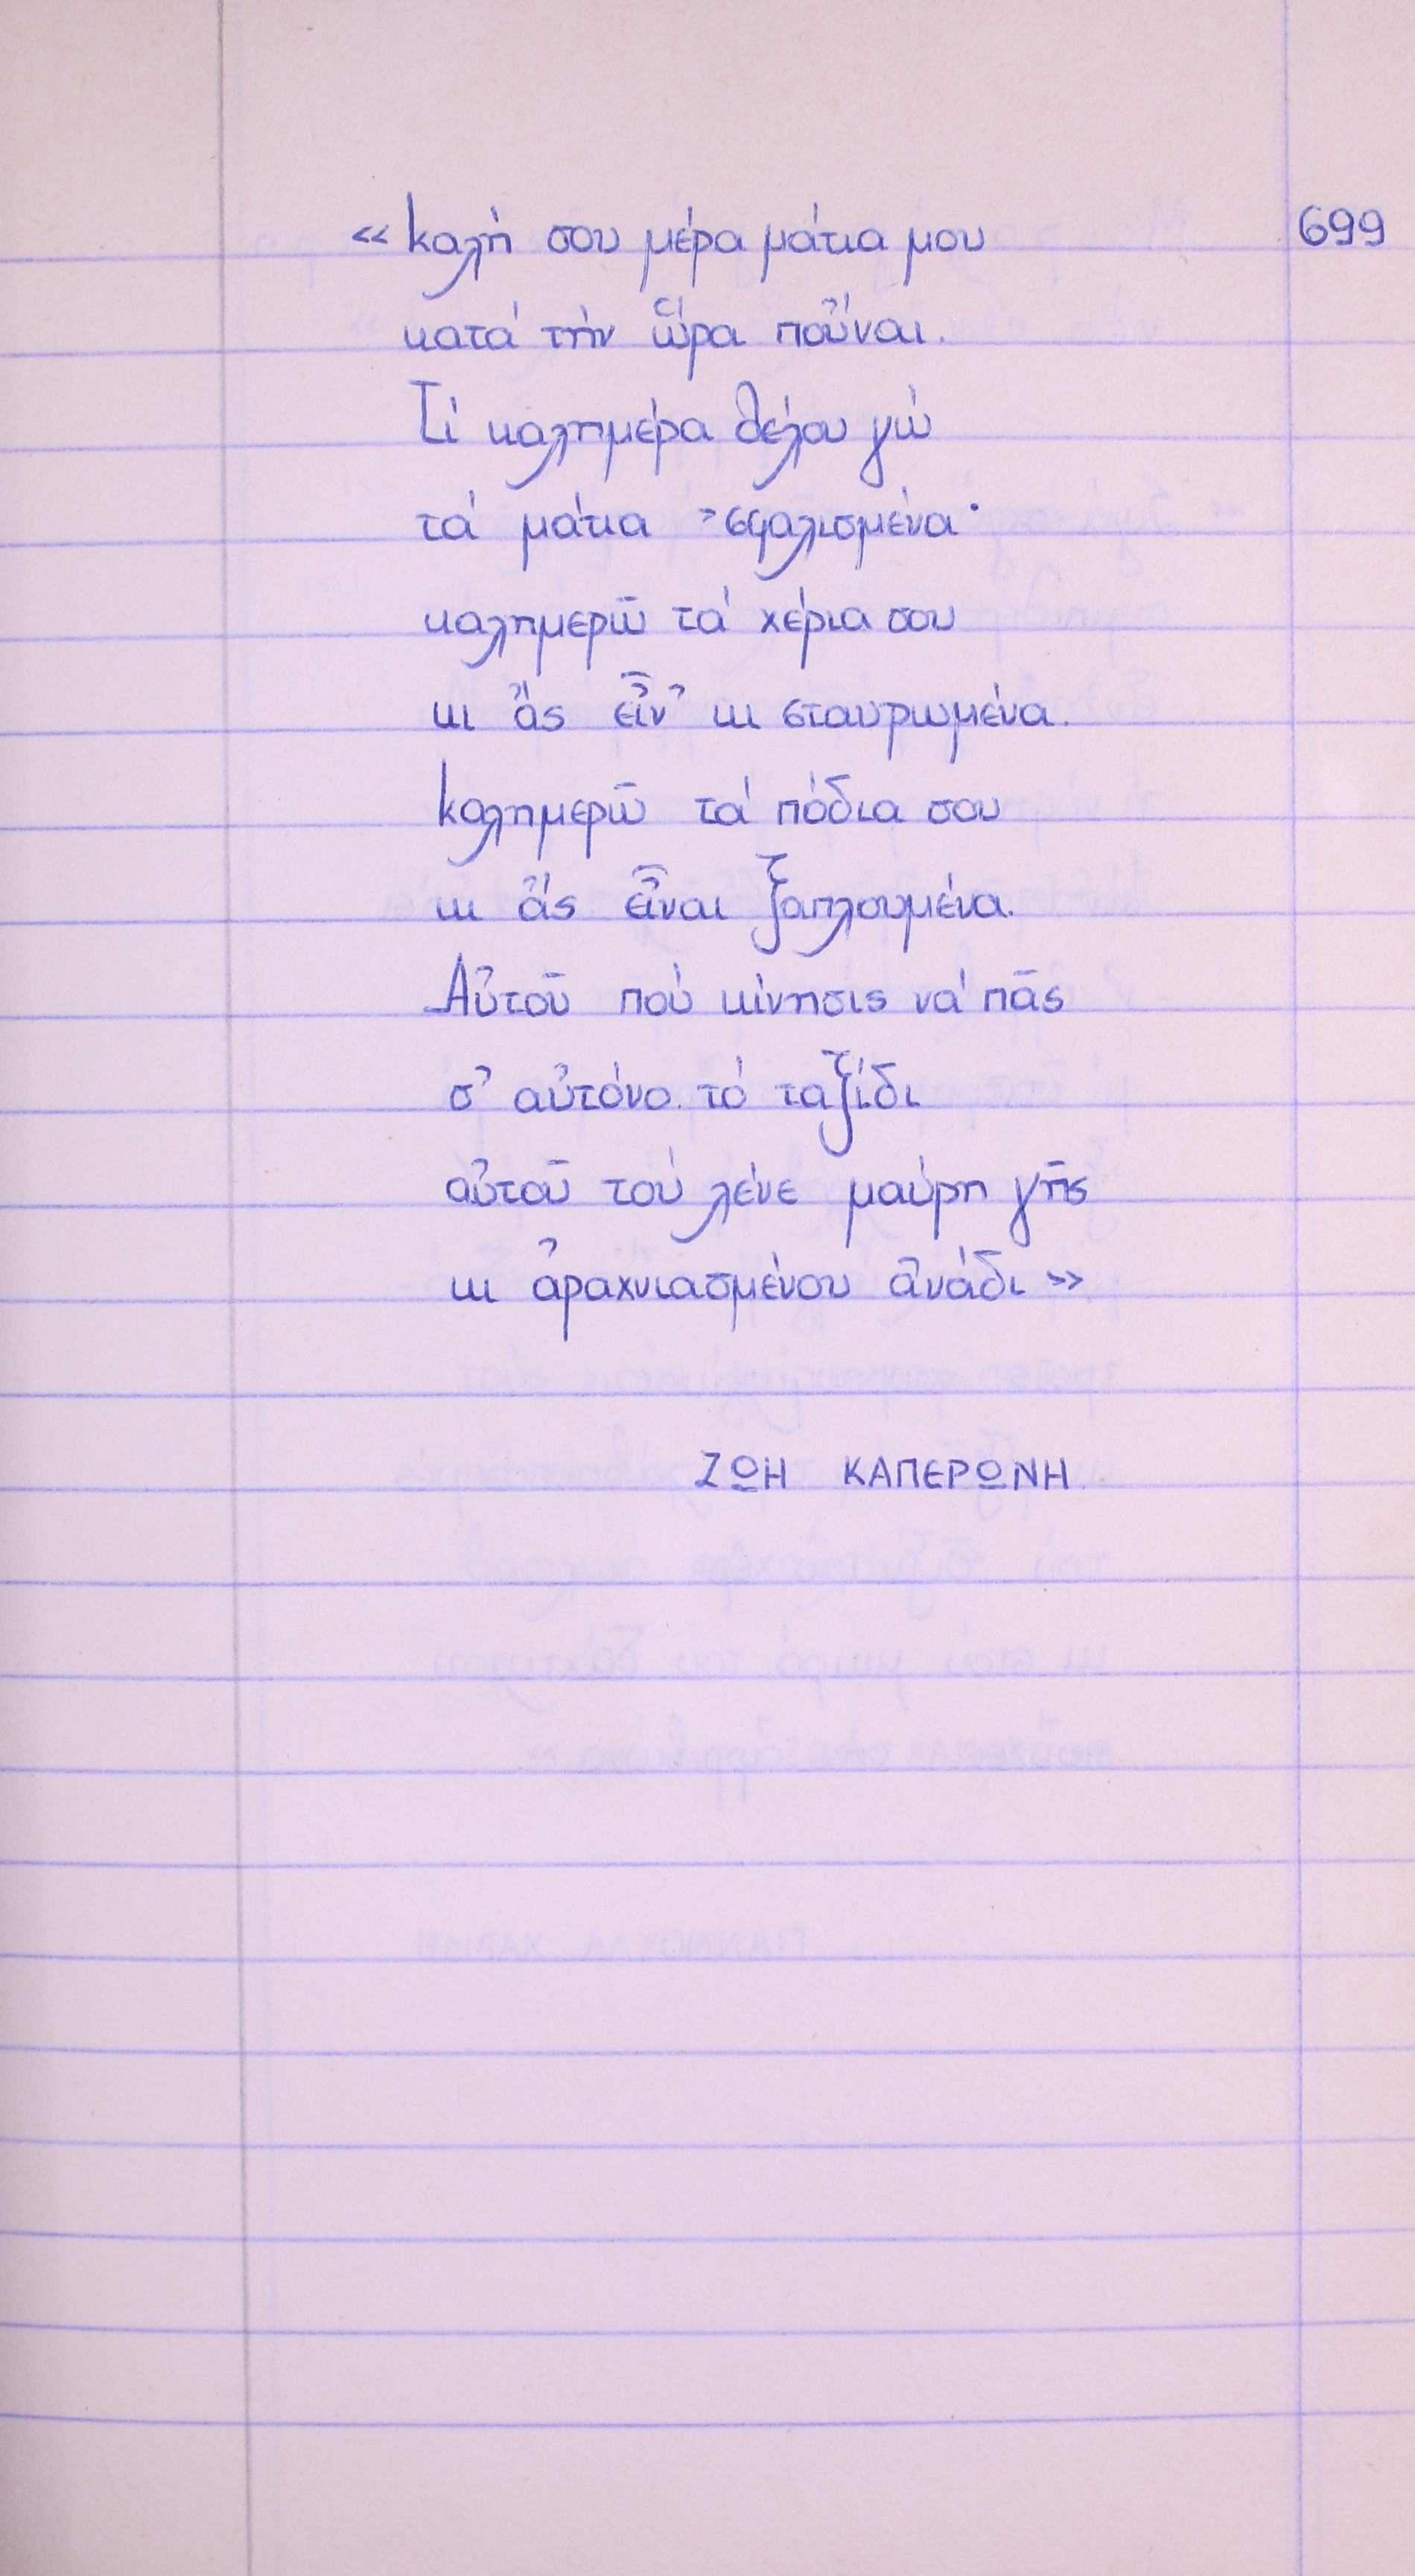 699
«Καλή σου μέρα μάτια μου
κατά τήν ὥρα ποὖναι.
Τί καλημέρα θέλου γώ
τά μάτια ᾿σφαλισμένα·
καλημερῶ τά χέρια σου
κι ἄς εἶν᾿ κι σταυρωμένα.
Καλημερῶ τά πόδια σου
κι ἄς εἶναι ξαπλουμένα.
Αὐτοῦ πού κίνησις νά πᾶς
σ᾿ αὐτόνο τό ταξίδι
αὐτοῦ τού λένε μαύρη γῆς
κι ἀραχνιασμένου ἀνάδι»
ΖΩΗ ΚΑΠΕΡΩΝΗ